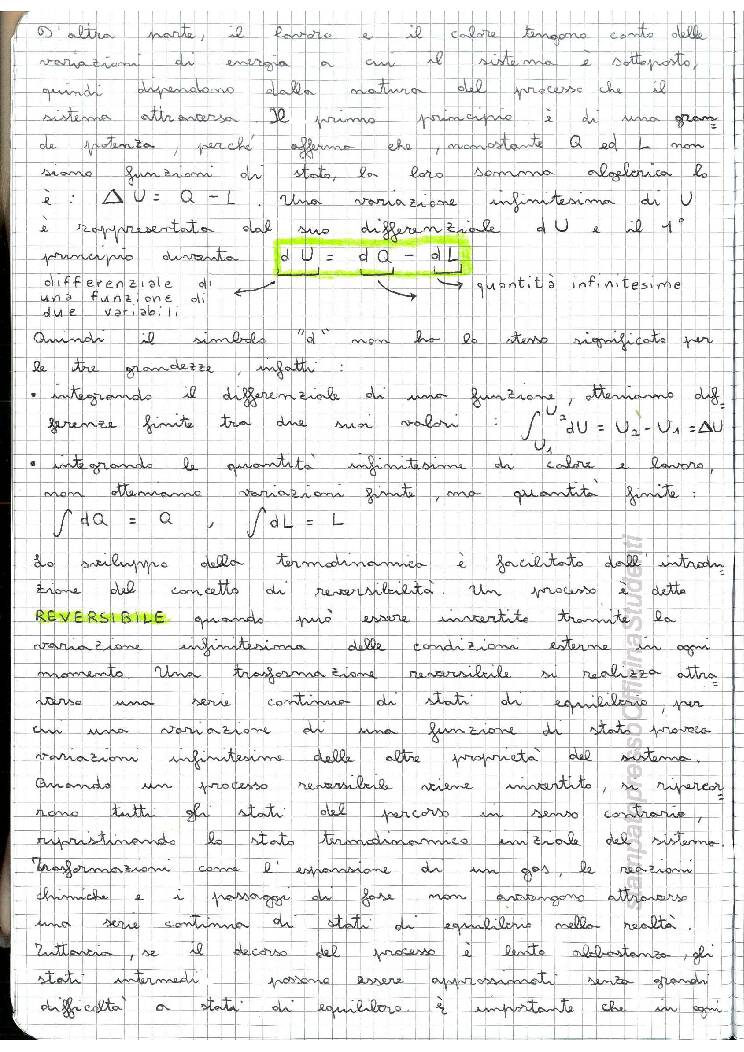 D'altra parte, il lavoro e il calore tengono conto delle
variazioni di energia a cui il sistema è sottoposto,
quindi dipendono dalla natura del processo che il
sistema attraversa. Il primo principio è di una gran=
de potenza, perché afferma che, nonostante Q ed L non
siano funzioni di stato, la loro somma algebrica lo
è : ΔU = Q - L. Una variazione infinitesima di U
è rappresentata dal suo differenziale dU e il 1°
principio diventa dU = dQ - dL
differenziale di
una funzione di
due variabili
quantità infinitesime
Quindi il simbolo "d" non ha lo stesso significato per
le tre grandezze, infatti :
• integrando il differenziale di una funzione, otteniamo dif=
ferenze finite tra due suoi valori : ∫_{U1}^{U2} dU = U2 - U1 = ΔU
• integrando le quantità infinitesime di calore e lavoro,
non otteniamo variazioni finite, ma quantità finite :
∫ dQ = Q , ∫ dL = L
Lo sviluppo della termodinamica è facilitato dall'introdu=
zione del concetto di reversibilità. Un processo è detto
REVERSIBILE quando può essere invertito tramite la
variazione infinitesima delle condizioni esterne in ogni
momento. Una trasformazione reversibile si realizza attra=
verso una serie continua di stati di equilibrio, per
cui una variazione di una funzione di stato provoca
variazioni infinitesime delle altre proprietà del sistema.
Quando un processo reversibile viene invertito, si ripercor=
rono tutti gli stati del percorso in senso contrario,
ripristinando lo stato termodinamico iniziale del sistema.
Trasformazioni come l'espansione di un gas, le reazioni
chimiche e i passaggi di fase non avvengono attraverso
una serie continua di stati di equilibrio nella realtà.
Tuttavia, se il decorso del processo è lento abbastanza, gli
stati intermedi possono essere approssimati senza grandi
difficoltà a stati di equilibrio. È importante che in ogni
StampanpressoOfficinaStudenti